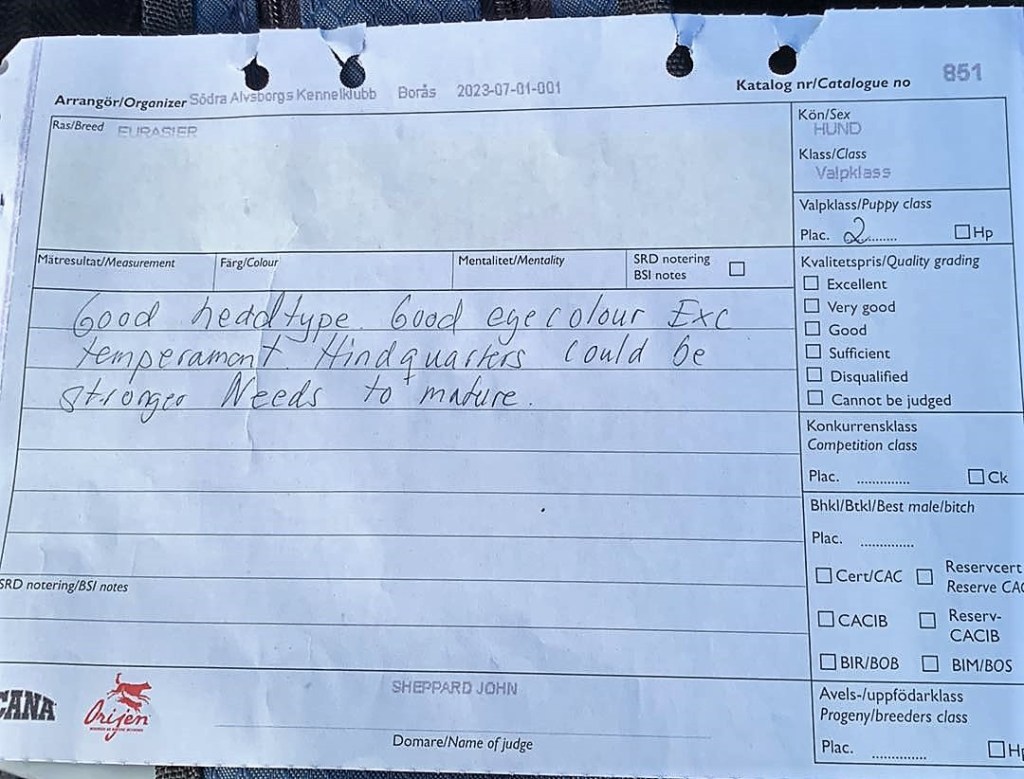 Arrangör/Organizer Södra Älvsborgs Kennelklubb Borås 2023-07-01-001 Katalog nr/Catalogue no 851
Ras/Breed EURASIER
Kön/Sex
HUND
Klass/Class
Valpklass
Valpklass/Puppy class
Plac. 2........ Hp
Mätresultat/Measurement Färg/Colour Mentalitet/Mentality SRD notering
BSI notes
Kvalitetspris/Quality grading
Excellent
Very good
Good
Sufficient
Disqualified
Cannot be judged
Good head type. Good eye colour Exc
temperamont. Hindquarters could be
stronger Needs to mature.
Konkurrensklass
Competition class
Plac. .............. Ck
Bhkl/Btkl/Best male/bitch
Plac. ..............
Cert/CAC Reservcert
Reserve CAC
CACIB Reserv-
CACIB
BIR/BOB BIM/BOS
SRD notering/BSI notes
Avels-/uppfödarklass
Progeny/breeders class
Plac. .............. Hp
CANA Orijen
SHEPPARD JOHN
Domare/Name of judge